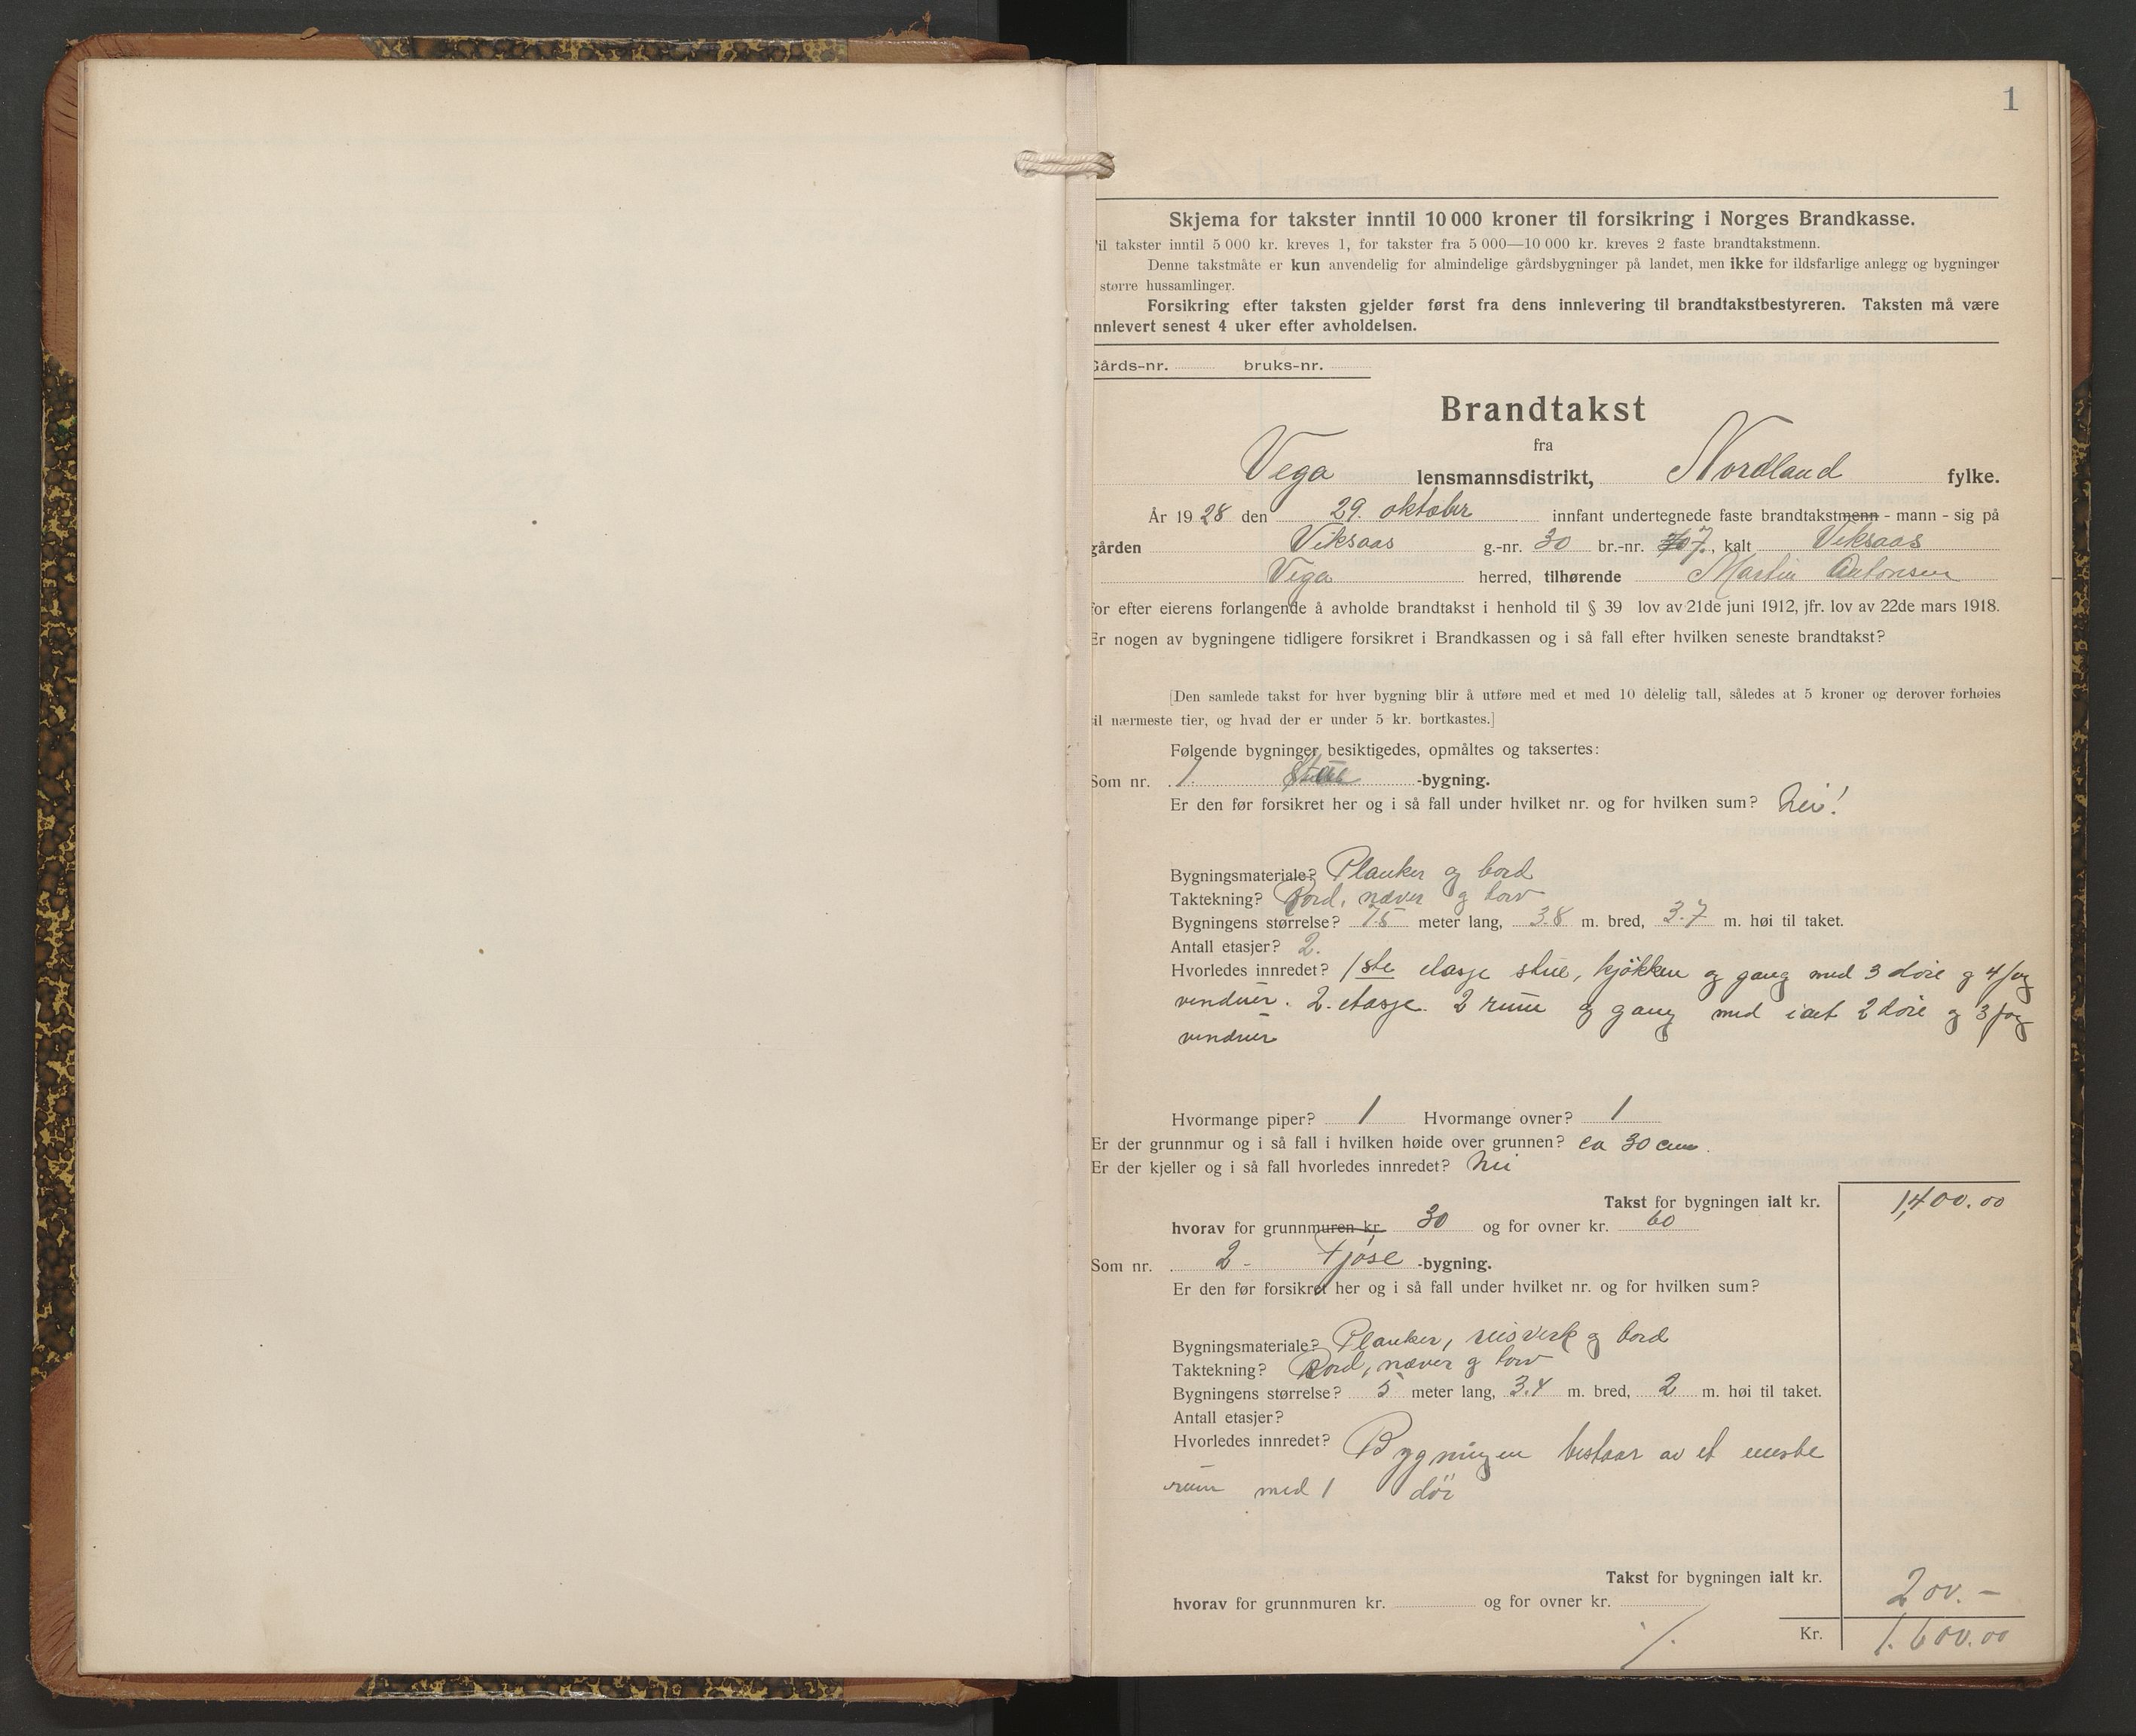 1
Skjema for takster inntil 10 000 kroner til forsikring i Norges Brandkasse.
il takster inntil 5 000 kr. kreves 1, for takster fra 5 000—10 000 kr. kreves 2 faste brandtakstmenn.
Denne takstmåte er kun anvendelig for almindelige gårdsbygninger på landet, men ikke for ildsfarlige anlegg og bygninger
større hussamlinger.
Forsikring efter taksten gjelder først fra dens innlevering til brandtakstbestyreren. Taksten må være
nnlevert senest 4 uker efter avholdelsen.
Gårds-nr. bruks-nr.
Brandtakst
fra
Vega lensmannsdistrikt, Nordland fylke.
År 1928 den 29. oktober innfant undertegnede faste brandtakstmenn - mann - sig på
gården Viksaas g.-nr. 30 br.-nr. 7., kalt Viksaas
Vega herred, tilhørende Martin Antonsen
for efter eierens forlangende å avholde brandtakst i henhold til § 39 lov av 21de juni 1912, jfr. lov av 22de mars 1918.
Er nogen av bygningene tidligere forsikret i Brandkassen og i så fall efter hvilken seneste brandtakst?
[Den samlede takst for hver bygning blir å utføre med et med 10 delelig tall, således at 5 kroner og derover forhøies
il nærmeste tier, og hvad der er under 5 kr. bortkastes.]
Følgende bygninger besiktigedes, opmåltes og taksertes:
Som nr. 1. Stue -bygning.
Er den før forsikret her og i så fall under hvilket nr. og for hvilken sum? Nei!
Bygningsmateriale? Planker og bord
Taktekning? Bord, næver og torv
Bygningens størrelse? 7.5 meter lang, 3.8 m. bred, 3.7 m. høi til taket.
Antall etasjer? 2.
Hvorledes innredet? 1ste etasje stue, kjøkken og gang med 3 døre og 4 fag
vinduer. 2. etasje. 2 rum og gang med ialt 2 døre og 3 fag
vinduer
Hvormange piper? 1 Hvormange ovner? 1
Er der grunnmur og i så fall i hvilken høide over grunnen? ca 30 cm.
Er der kjeller og i så fall hvorledes innredet? Nei
Takst for bygningen ialt kr. 1,400.00
hvorav for grunnmuren kr. 30 og for ovner kr. 60
Som nr. 2 - Fjøse -bygning.
Er den før forsikret her og i så fall under hvilket nr. og for hvilken sum?
Bygningsmateriale? Planker, reisverk og bord
Taktekning? Bord, næver og torv
Bygningens størrelse? 5 meter lang, 3.4 m. bred, 2 m. høi til taket.
Antall etasjer?
Hvorledes innredet? Bygningen bestaar av et eneste
rum med 1 dør
Takst for bygningen ialt kr. 200.-
hvorav for grunnmuren kr. og for ovner kr.
./. Kr. 1.600.00